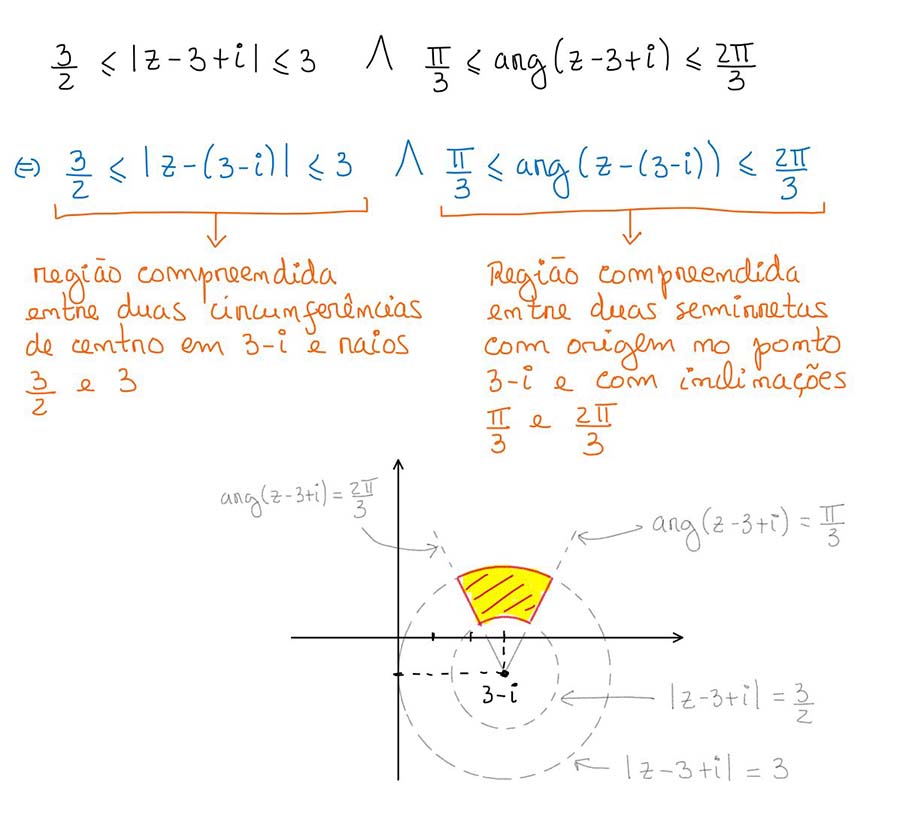 3/2 ≤ |z-3+i| ≤ 3 ∧ π/3 ≤ arg(z-3+i) ≤ 2π/3
⇔ 3/2 ≤ |z-(3-i)| ≤ 3 ∧ π/3 ≤ arg(z-(3-i)) ≤ 2π/3
região compreendida
entre duas circunferências
de centro em 3-i e raios
3/2 e 3
Região compreendida
entre duas semirretas
com origem no ponto
3-i e com inclinações
π/3 e 2π/3
arg(z-3+i) = 2π/3
arg(z-3+i) = π/3
3-i
|z-3+i| = 3/2
|z-3+i| = 3